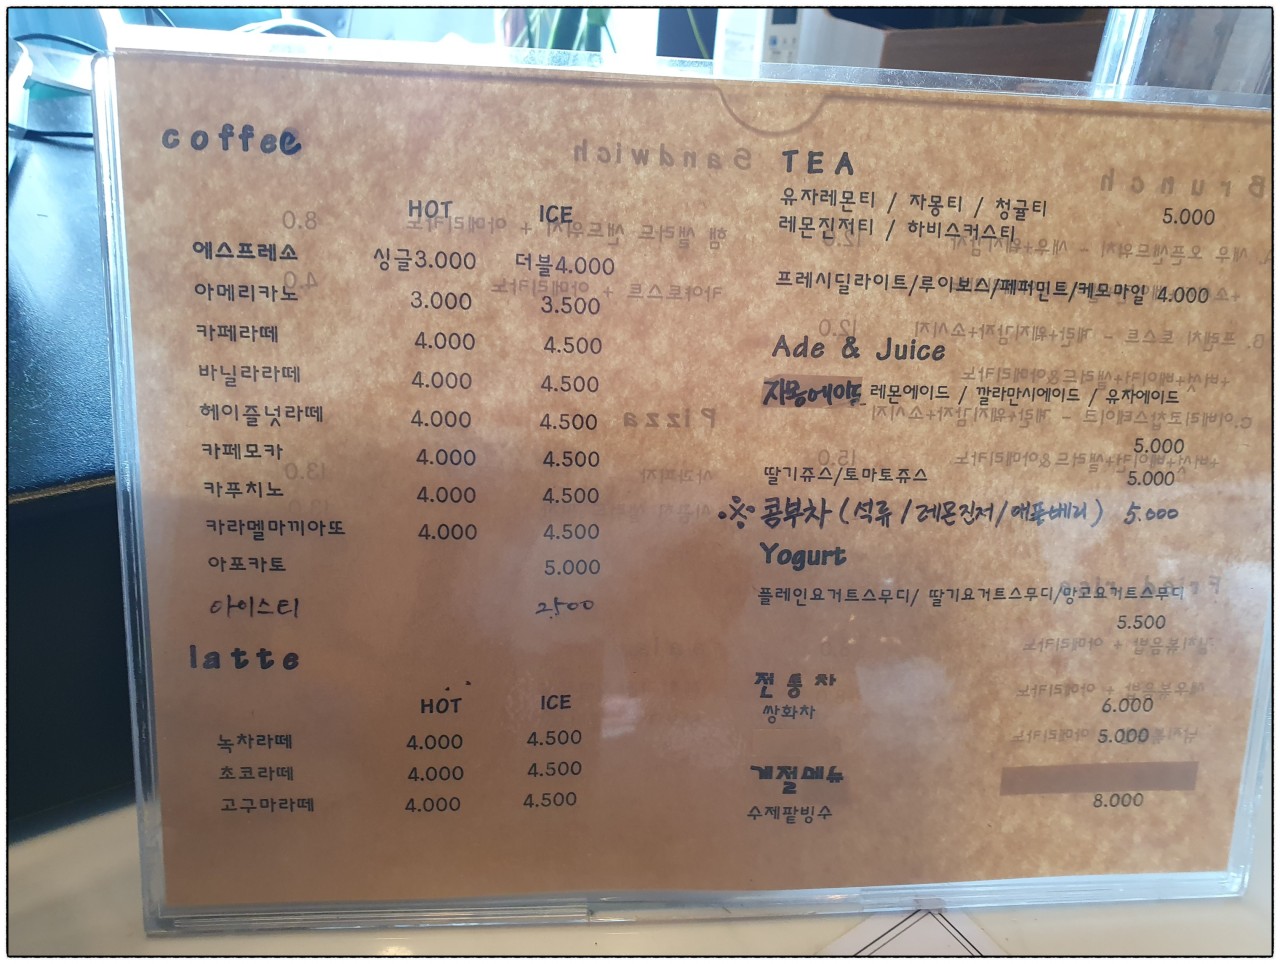 coffee
HOT ICE
에스프레소 싱글3.000 더블4.000
아메리카노 3.000 3.500
카페라떼 4.000 4.500
바닐라라떼 4.000 4.500
헤이즐넛라떼 4.000 4.500
카페모카 4.000 4.500
카푸치노 4.000 4.500
카라멜마끼아또 4.000 4.500
아포카토 5.000
아이스티 2.500
latte
HOT ICE
녹차라떼 4.000 4.500
초코라떼 4.000 4.500
고구마라떼 4.000 4.500
TEA
유자레몬티 / 자몽티 / 청귤티 5.000
레몬진저티 / 하비스커스티
프레시딜라이트/루이보스/페퍼민트/케모마일 4.000
Ade & Juice
자몽에이드 레몬에이드 / 깔라만시에이드 / 유자에이드
5.000
딸기쥬스/토마토쥬스 5.000
※ 콤부차 (석류 / 레몬진저/애플베리) 5.000
Yogurt
플레인요거트스무디/ 딸기요거트스무디/망고요거트스무디
5.500
전통차
쌍화차 6.000
5.000
계절메뉴
수제팥빙수 8.000